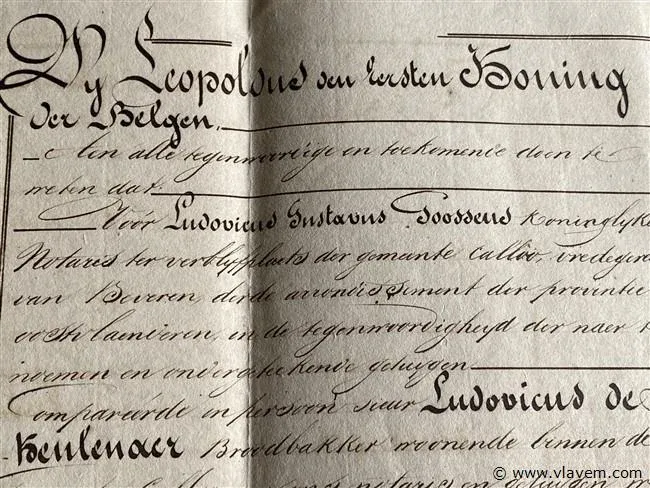 Wy Leopoldus den Eersten Koning
der Belgen.
Aen alle tegenwoordige en toekomende doen te
weten dat
Vóór Ludovicus Gustavus Goossens Koninglyke
Notaris ter verblyfplaets der gemeente Calloo, vredegere
van Beveren derde arrondissement der provintie
oostvlaenderen, in de tegenwoordigheyd der naer te
noemen en ondergeteekende getuygen
Compareerde in persoon sieur Ludovicus de
Keulenaer Broodbakker woonende binnen de
notaris en getuygen
© www.vlavem.com